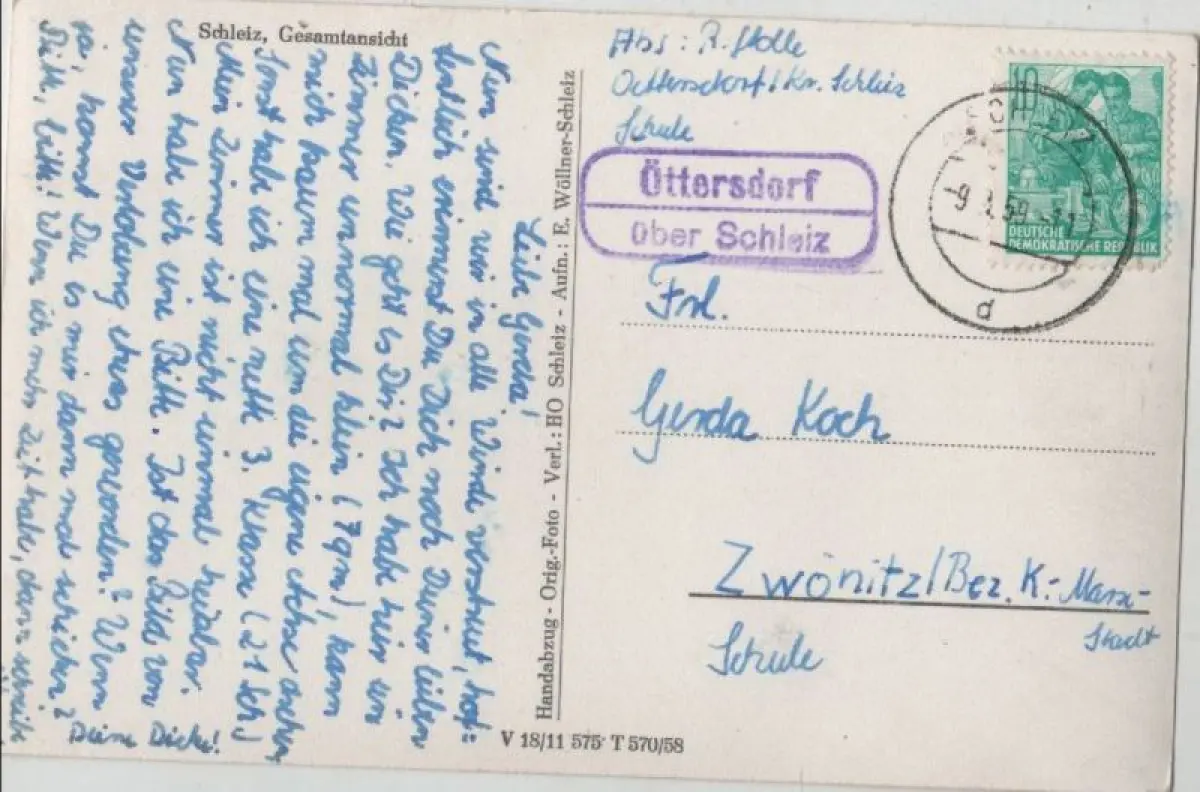 Schleiz, Gesamtansicht
Liebe Gerda!
Nun sind wir in alle Winde verstreut, hof=
fentlich erinnerst Du Dich noch Deiner lieben
Dicken. Wie geht es Dir? Ich habe hier ein
Zimmer unnormal klein (7qm), kann
mich kaum mal um die eigene Achse drehen
Sonst habe ich eine nette 3. Klasse (21 Sch)
Mein Zimmer ist nicht einmal heizbar.
Nun habe ich eine Bitte. Ist das Bild von
unserer Verlobung etwas geworden? Wenn
ja, kannst Du es mir dann mal schicken?
Bitte, bitte! Wenn ich mehr Zeit habe, dann schreibe
Deine Dicke!
Handabzug - Orig.-Foto - Verl.: HO Schleiz - Aufn.: E. Wöllner-Schleiz
V 18/11 575 T 570/58
Abs: R. Stolle
Oettersdorf/Kr. Schleiz
Schule
Öttersdorf
über Schleiz
10
DEUTSCHE
DEMOKRATISCHE REPUBLIK
d
Frl.
Gerda Koch
Zwönitz/Bez. K.-Marx-
Stadt
Schule